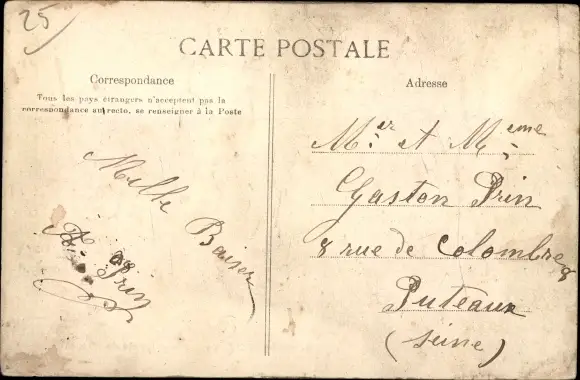 25
CARTE POSTALE
Correspondance
Tous les pays étrangers n'acceptent pas la
correspondance au recto, se renseigner à la Poste
Mille Baiser
Prin
Adresse
Mr et Mme
Gaston Prin
8 rue de Colombres
Puteaux
(Seine)